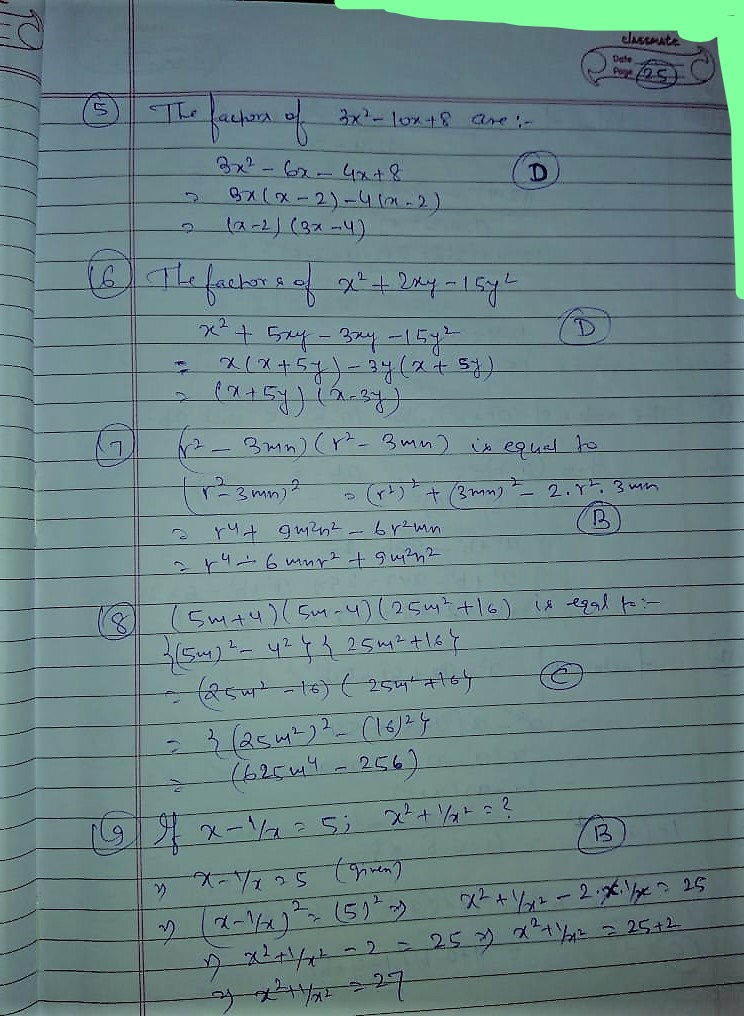 classmate
Date
Page 25
5 The factors of 3x² - 10x + 8 are :-
3x² - 6x - 4x + 8 D
= 3x(x - 2) - 4(x - 2)
= (x-2) (3x - 4)
6 The factors of x² + 2xy - 15y²
x² + 5xy - 3xy - 15y² D
= x(x + 5y) - 3y(x + 5y)
= (x + 5y) (x - 3y)
7 (r² - 3mn) (r² - 3mn) is equal to
(r² - 3mn)² = (r²)² + (3mn)² - 2.r².3mn
= r⁴ + 9m²n² - 6r²mn B
= r⁴ - 6mnr² + 9m²n²
8 (5m+4)(5m-4)(25m²+16) is eqal to :-
{(5m)² - 4²} {25m² + 16}
= (25m² - 16) (25m² + 16) C
= {(25m²)² - (16)²}
= (625m⁴ - 256)
9 If x - 1/x = 5; x² + 1/x² = ? B
⇒ x - 1/x = 5 (given)
⇒ (x - 1/x)² = (5)² ⇒ x² + 1/x² - 2.x.1/x = 25
⇒ x² + 1/x² - 2 = 25 ⇒ x² + 1/x² = 25+2
⇒ x² + 1/x² = 27